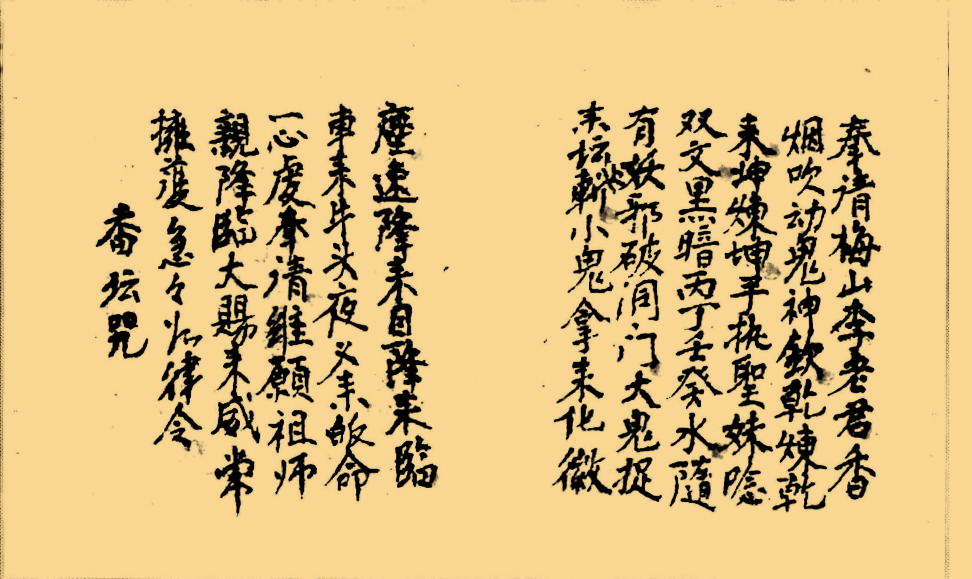 奉请梅山李老君香
烟吹动鬼神欽乾煉乾
来坤煉坤手执聖妹隐
双文黑暗丙丁壬癸水隨
有妖邪破洞门大鬼捉
来坛斬小鬼拿来化徽
塵速降来目降来臨
車来牛头夜义来皈命
一心虔奉请維願祖师
親降臨大賜来威常
擁護急々如律令
番坛咒